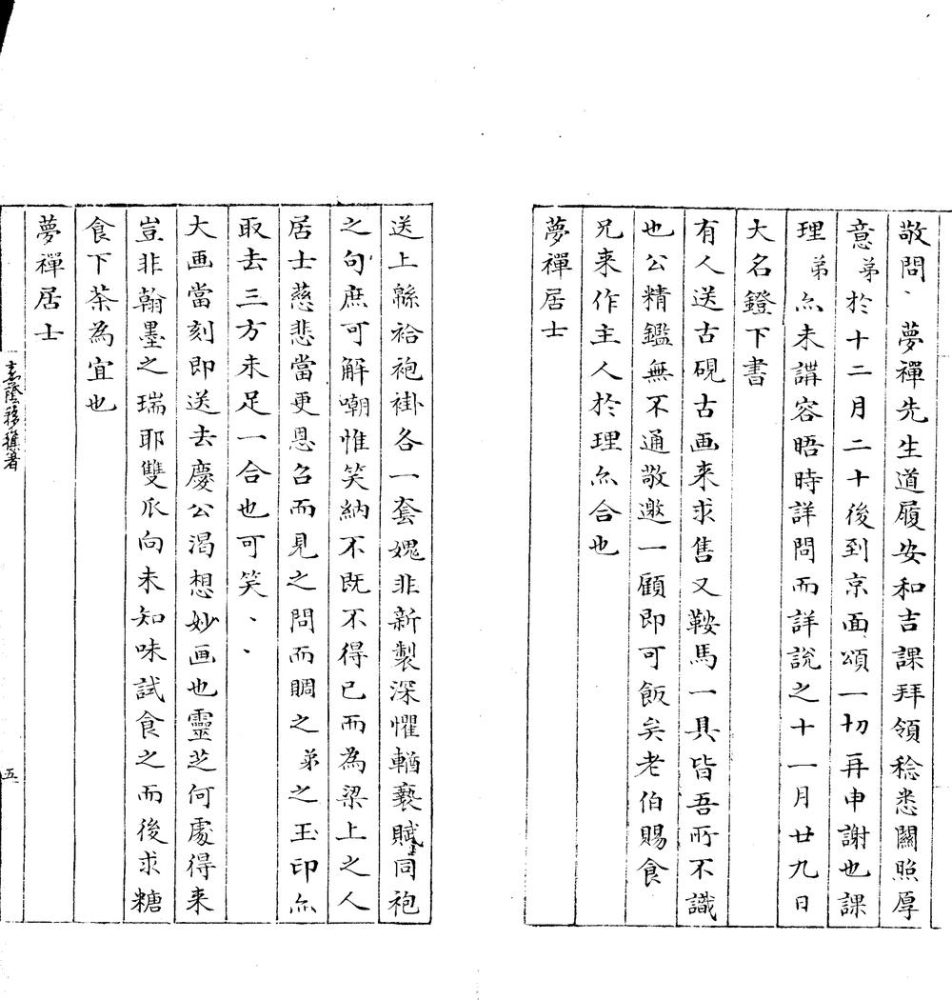 敬問、夢禪先生道履安和吉課拜領稔悉關照厚
意弟於十二月二十後到京面頌一切再申謝也課
理弟尒未講容晤時詳問而詳說之十一月廿九日
大名鐙下書
有人送古硯古画来求售又鞍馬一具皆吾所不識
也公精鑑無不通敬邀一顧即可飯矣老伯賜食
兄来作主人於理尒合也
夢禪居士
送上緜袷袍褂各一套媿非新製深懼輶褻賦同袍
之句庶可解嘲惟笑納不既不得已而為梁上之人
居士慈悲當更恩召而見之問而賙之弟之玉印尒
取去三方未足一合也可笑、、
大画當刻即送去慶公渴想妙画也靈芝何處得来
豈非翰墨之瑞耶雙爪向未知味試食之而後求糖
食下茶為宜也
夢禪居士
五